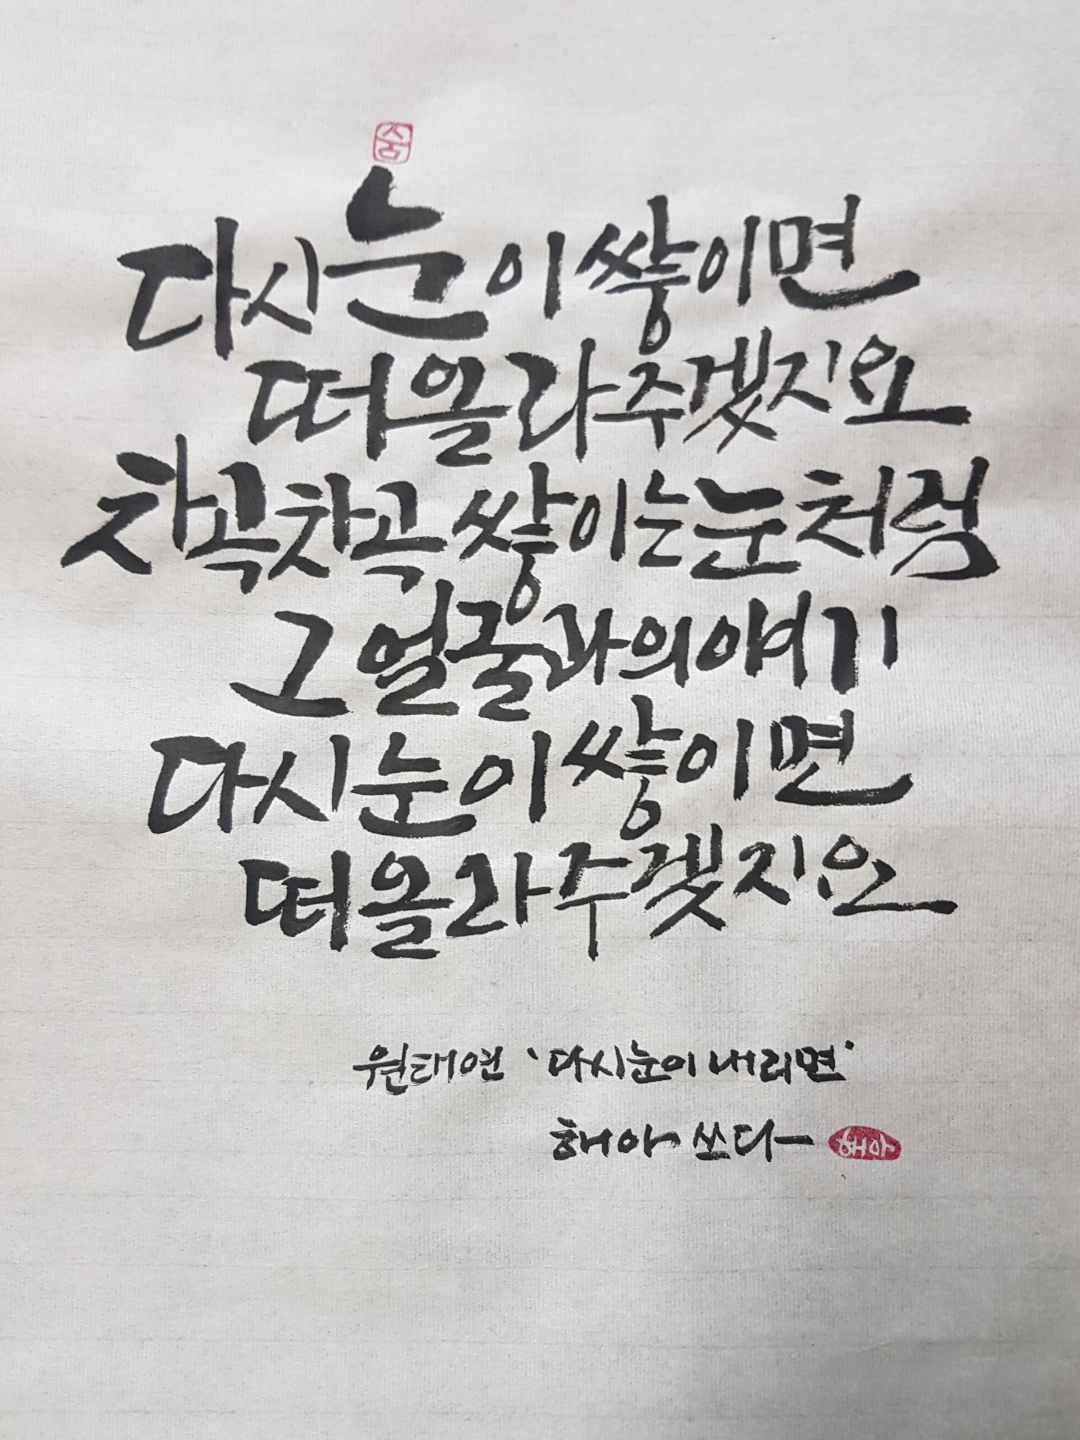 숨
다시 눈이 쌓이면
떠올라 주겠지요
차곡차곡 쌓이는 눈처럼
그 얼굴과의 얘기
다시 눈이 쌓이면
떠올라 주겠지요
원태연 '다시 눈이 내리면'
해아 쓰다 해아